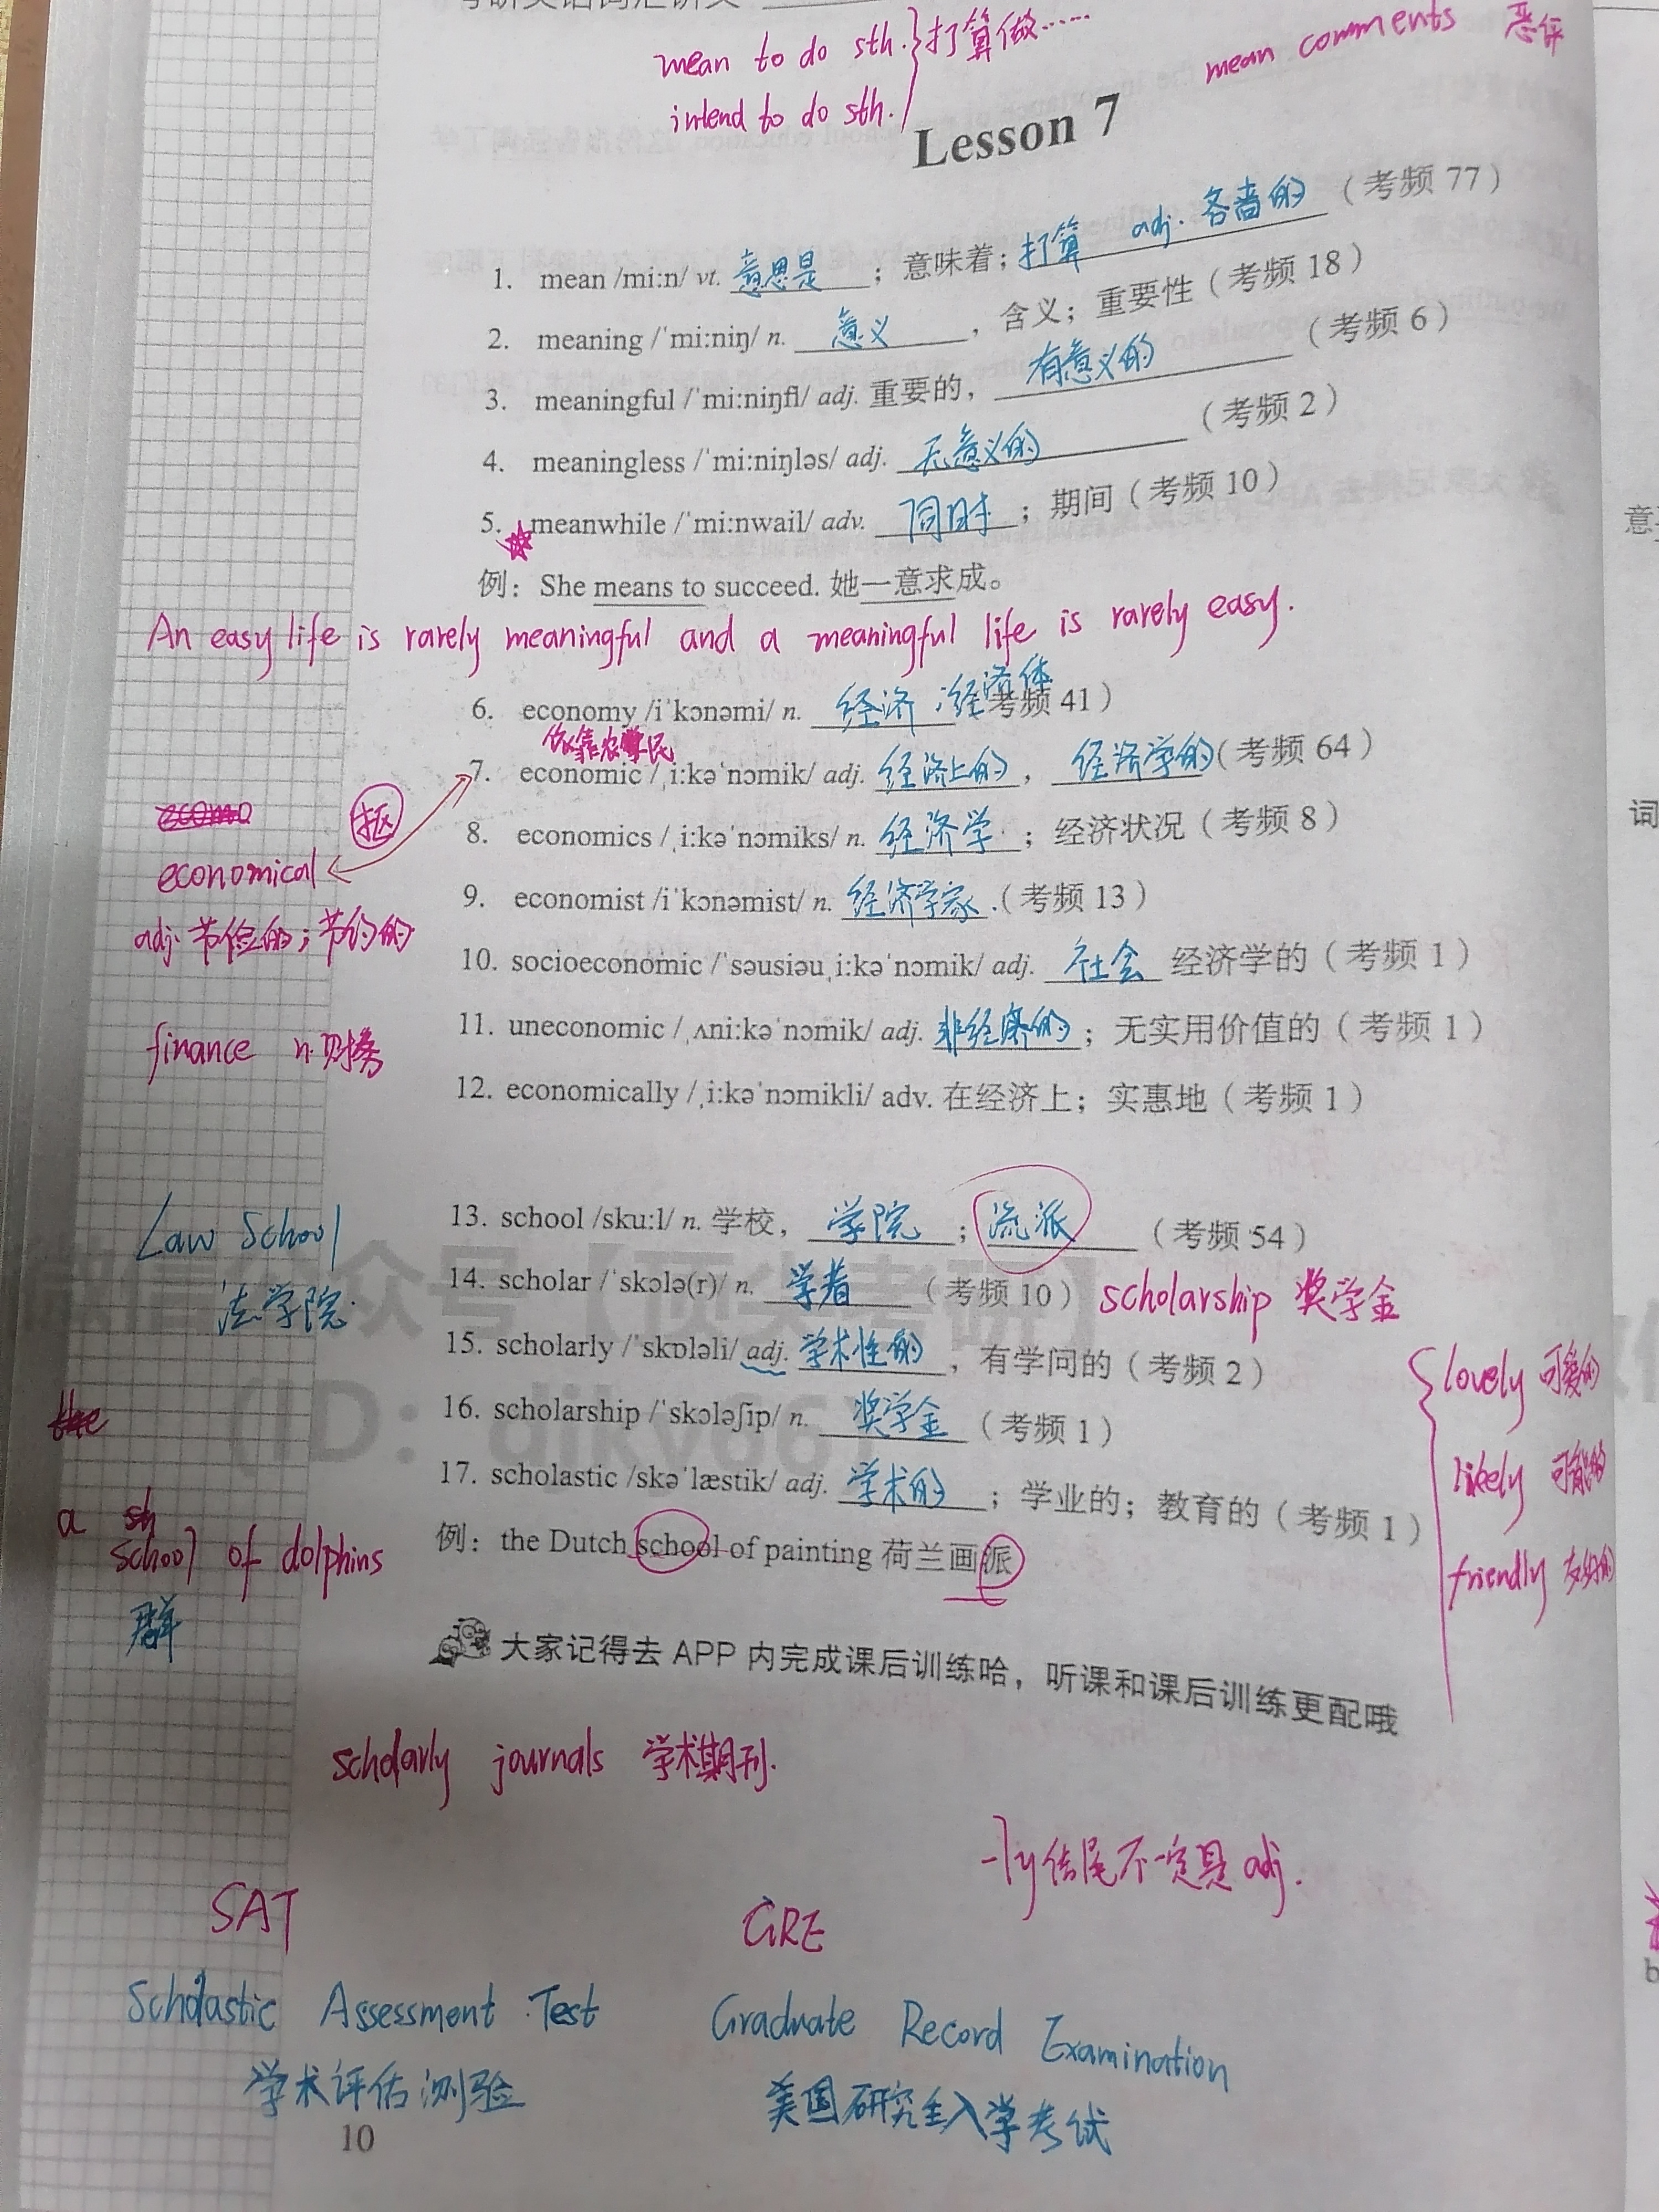 mean to do sth. } 打算做……
intend to do sth.
mean comments 恶评
Lesson 7
1. mean /mi:n/ vt. 意思是 ；意味着；打算 adj. 吝啬的 （考频 77）
2. meaning /ˈmi:niŋ/ n. 意义 ，含义；重要性（考频 18）
3. meaningful /ˈmi:niŋfl/ adj. 重要的， 有意义的 （考频 6）
4. meaningless /ˈmi:niŋləs/ adj. 无意义的 （考频 2）
5. meanwhile /ˈmi:nwail/ adv. 同时 ；期间（考频 10）
例：She means to succeed. 她一意求成。
An easy life is rarely meaningful and a meaningful life is rarely easy.
6. economy /iˈkɔnəmi/ n. 经济；经济体 考频 41）
依靠农民
7. economic /ˌi:kəˈnɔmik/ adj. 经济上的 ， 经济学的（考频 64）
区
8. economics /ˌi:kəˈnɔmiks/ n. 经济学 ；经济状况（考频 8）
economical
adj. 节俭的；节约的
9. economist /iˈkɔnəmist/ n. 经济学家.（考频 13）
10. socioeconomic /ˈsəusiəuˌi:kəˈnɔmik/ adj. 社会 经济学的（考频 1）
11. uneconomic /ˌʌni:kəˈnɔmik/ adj. 非经济的 ；无实用价值的（考频 1）
finance n. 财务
12. economically /ˌi:kəˈnɔmikli/ adv. 在经济上；实惠地（考频 1）
13. school /sku:l/ n. 学校， 学院 ； 流派 （考频 54）
Law School
法学院.
14. scholar /ˈskɔlə(r)/ n. 学者 （考频 10） scholarship 奖学金
15. scholarly /ˈskɒləli/ adj. 学术性的 ，有学问的（考频 2）
lovely 可爱的
16. scholarship /ˈskɔləʃip/ n. 奖学金 （考频 1）
likely 可能的
17. scholastic /skəˈlæstik/ adj. 学术的 ；学业的；教育的（考频 1）
friendly 友好的
例：the Dutch school of painting 荷兰画派
a school of dolphins
群
大家记得去 APP 内完成课后训练哈，听课和课后训练更配哦
scholarly journals 学术期刊.
-ly结尾不一定是 adj.
SAT
GRE
Scholastic Assessment Test
Graduate Record Examination
学术评估测验
美国研究生入学考试
10